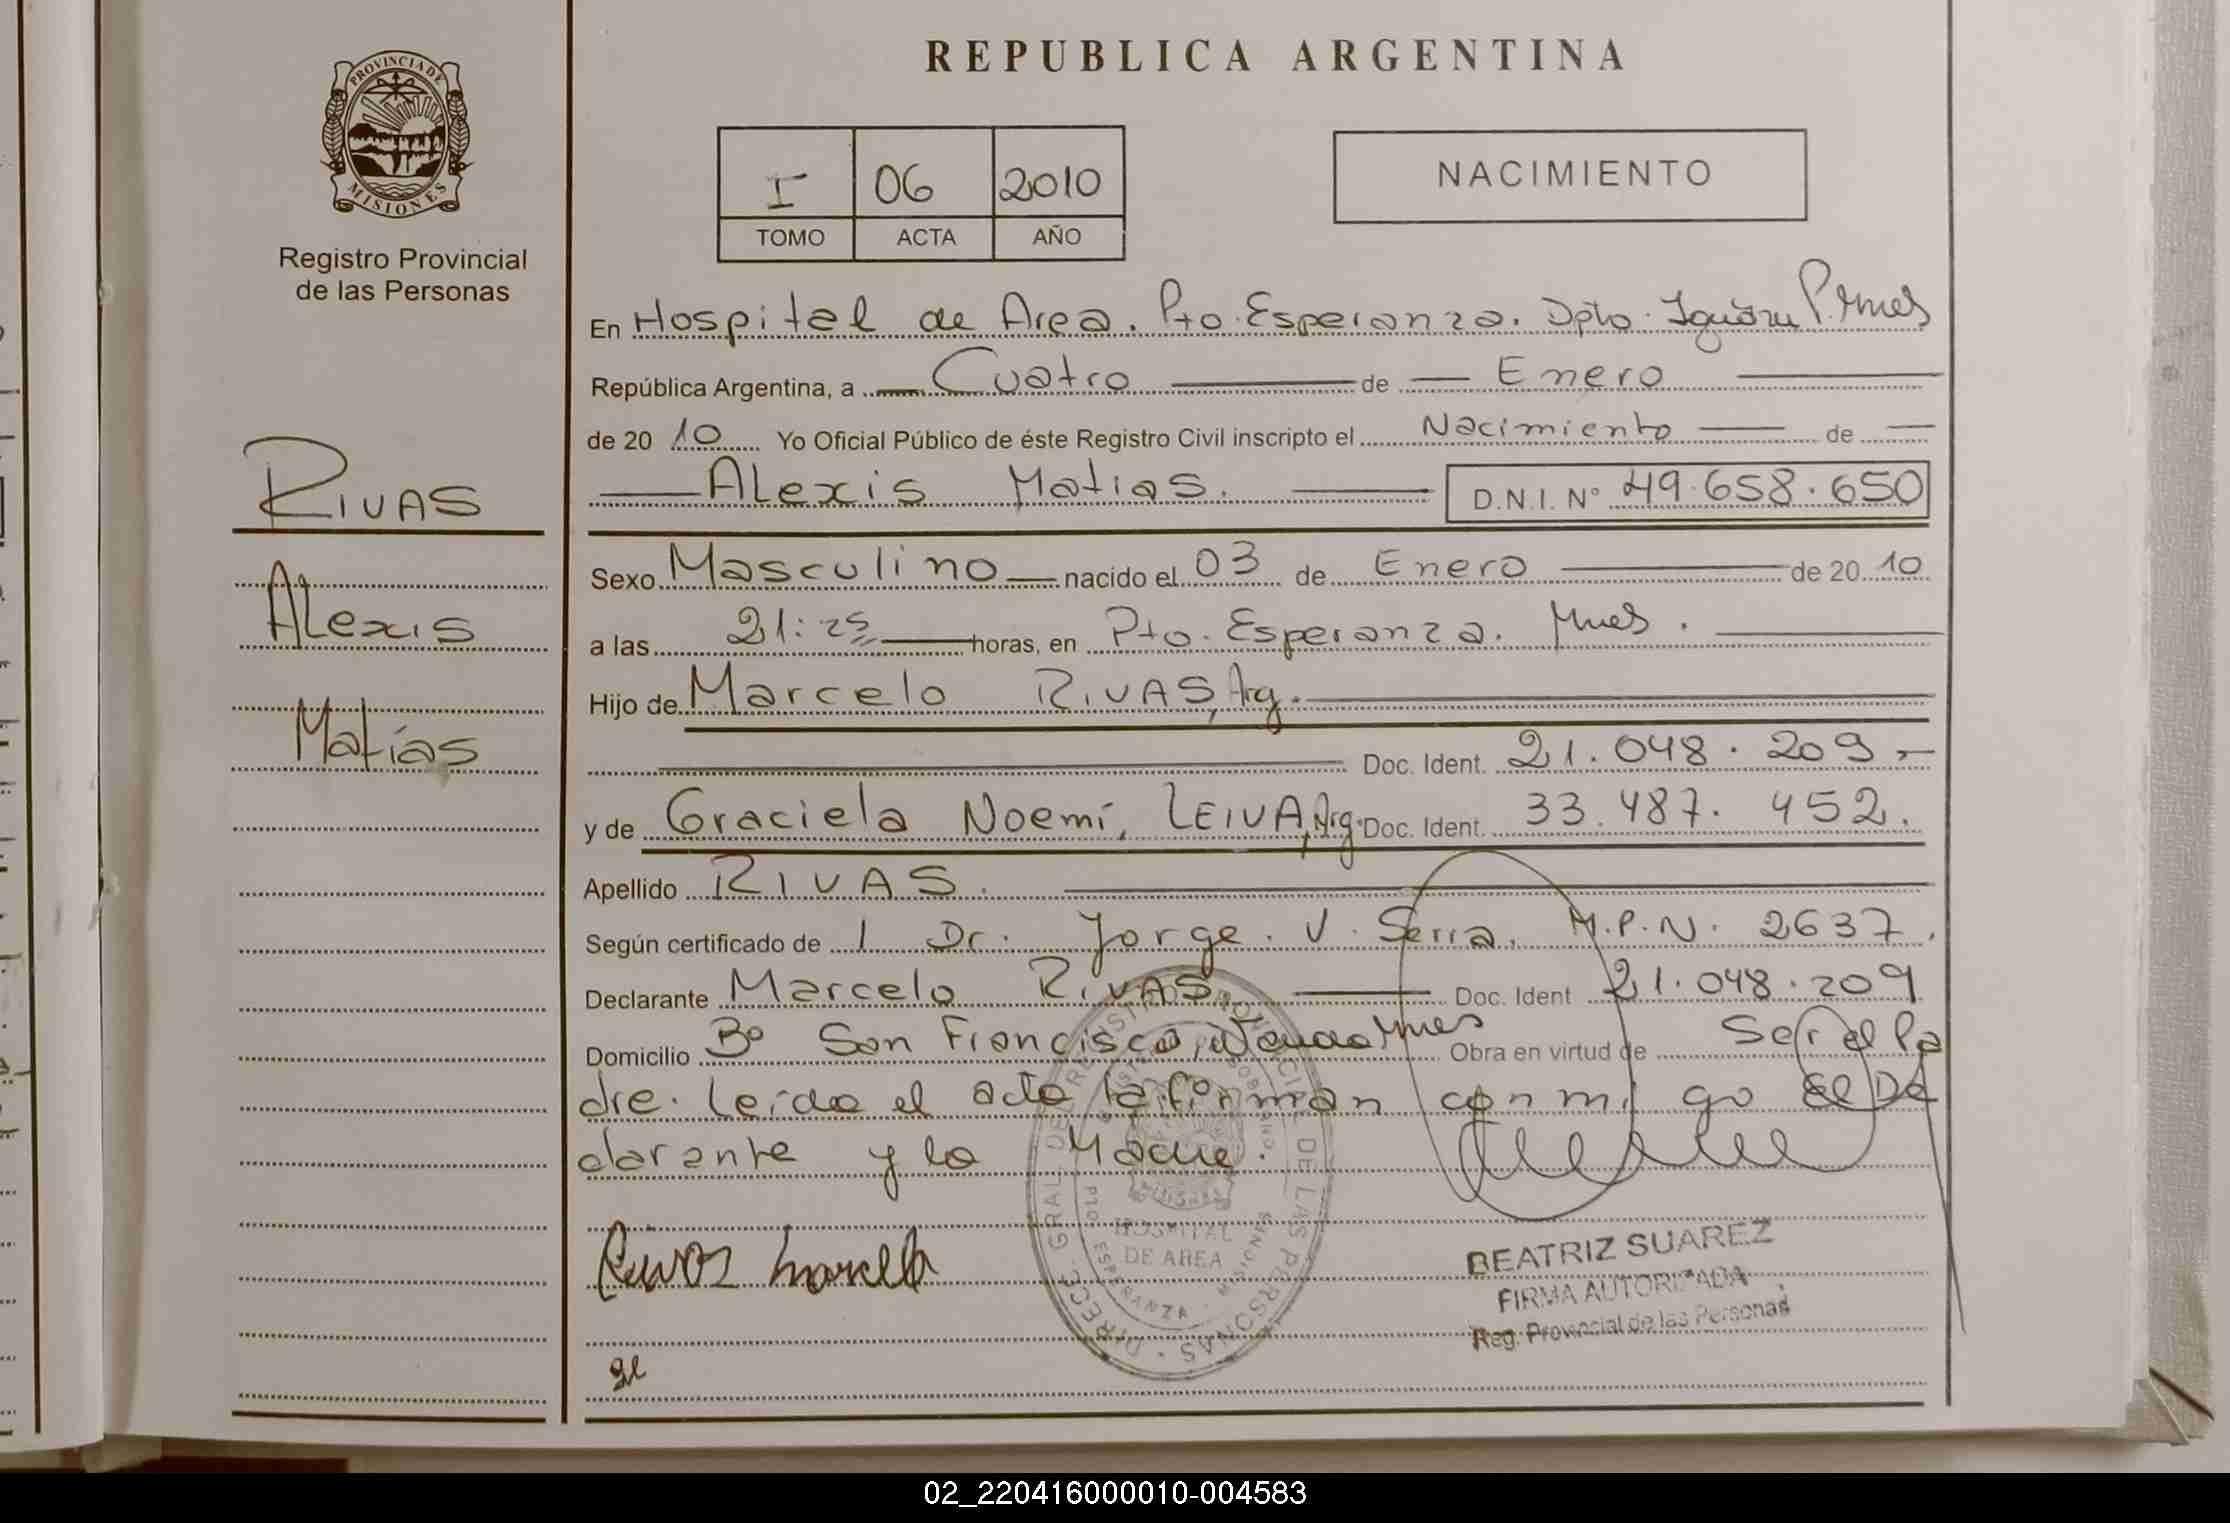 REPUBLICA ARGENTINA
PROVINCIA DE MISIONES
Registro Provincial
de las Personas
I 06 2010
TOMO ACTA AÑO
NACIMIENTO
RIVAS
Alexis
Matías
En Hospital de Area. Pto. Esperanza. Dpto. Iguazú P. Mnes
República Argentina, a Cuatro de Enero
de 20 10 Yo Oficial Público de éste Registro Civil inscripto el Nacimiento de
Alexis Matias. D.N.I. N° 49.658.650
Sexo Masculino nacido el 03 de Enero de 20 10
a las 21:25 horas, en Pto. Esperanza. Mnes.
Hijo de Marcelo RIVAS, Arg.
Doc. Ident. 21.048.209.-
y de Graciela Noemí, LEIVA, Arg. Doc. Ident. 33.487.452.
Apellido RIVAS.
Según certificado de 1 Dr. Jorge. V. Serra. M.P.N. 2637.
Declarante Marcelo RIVAS. Doc. Ident 21.048.209
Domicilio B° San Francisco, Mnes Obra en virtud de Ser el Pa
dre. Leída el acta la firman con mi go el De
clarante y la Madre.
DIRECC. GRAL. DEL REGISTRO PROVINCIAL DE LAS PERSONAS
HOSPITAL
DE AREA
ESPERANZA - MISIONES
Rivas Marcelo
gl
BEATRIZ SUAREZ
FIRMA AUTORIZADA
Reg. Provincial de las Personas
02_220416000010-004583